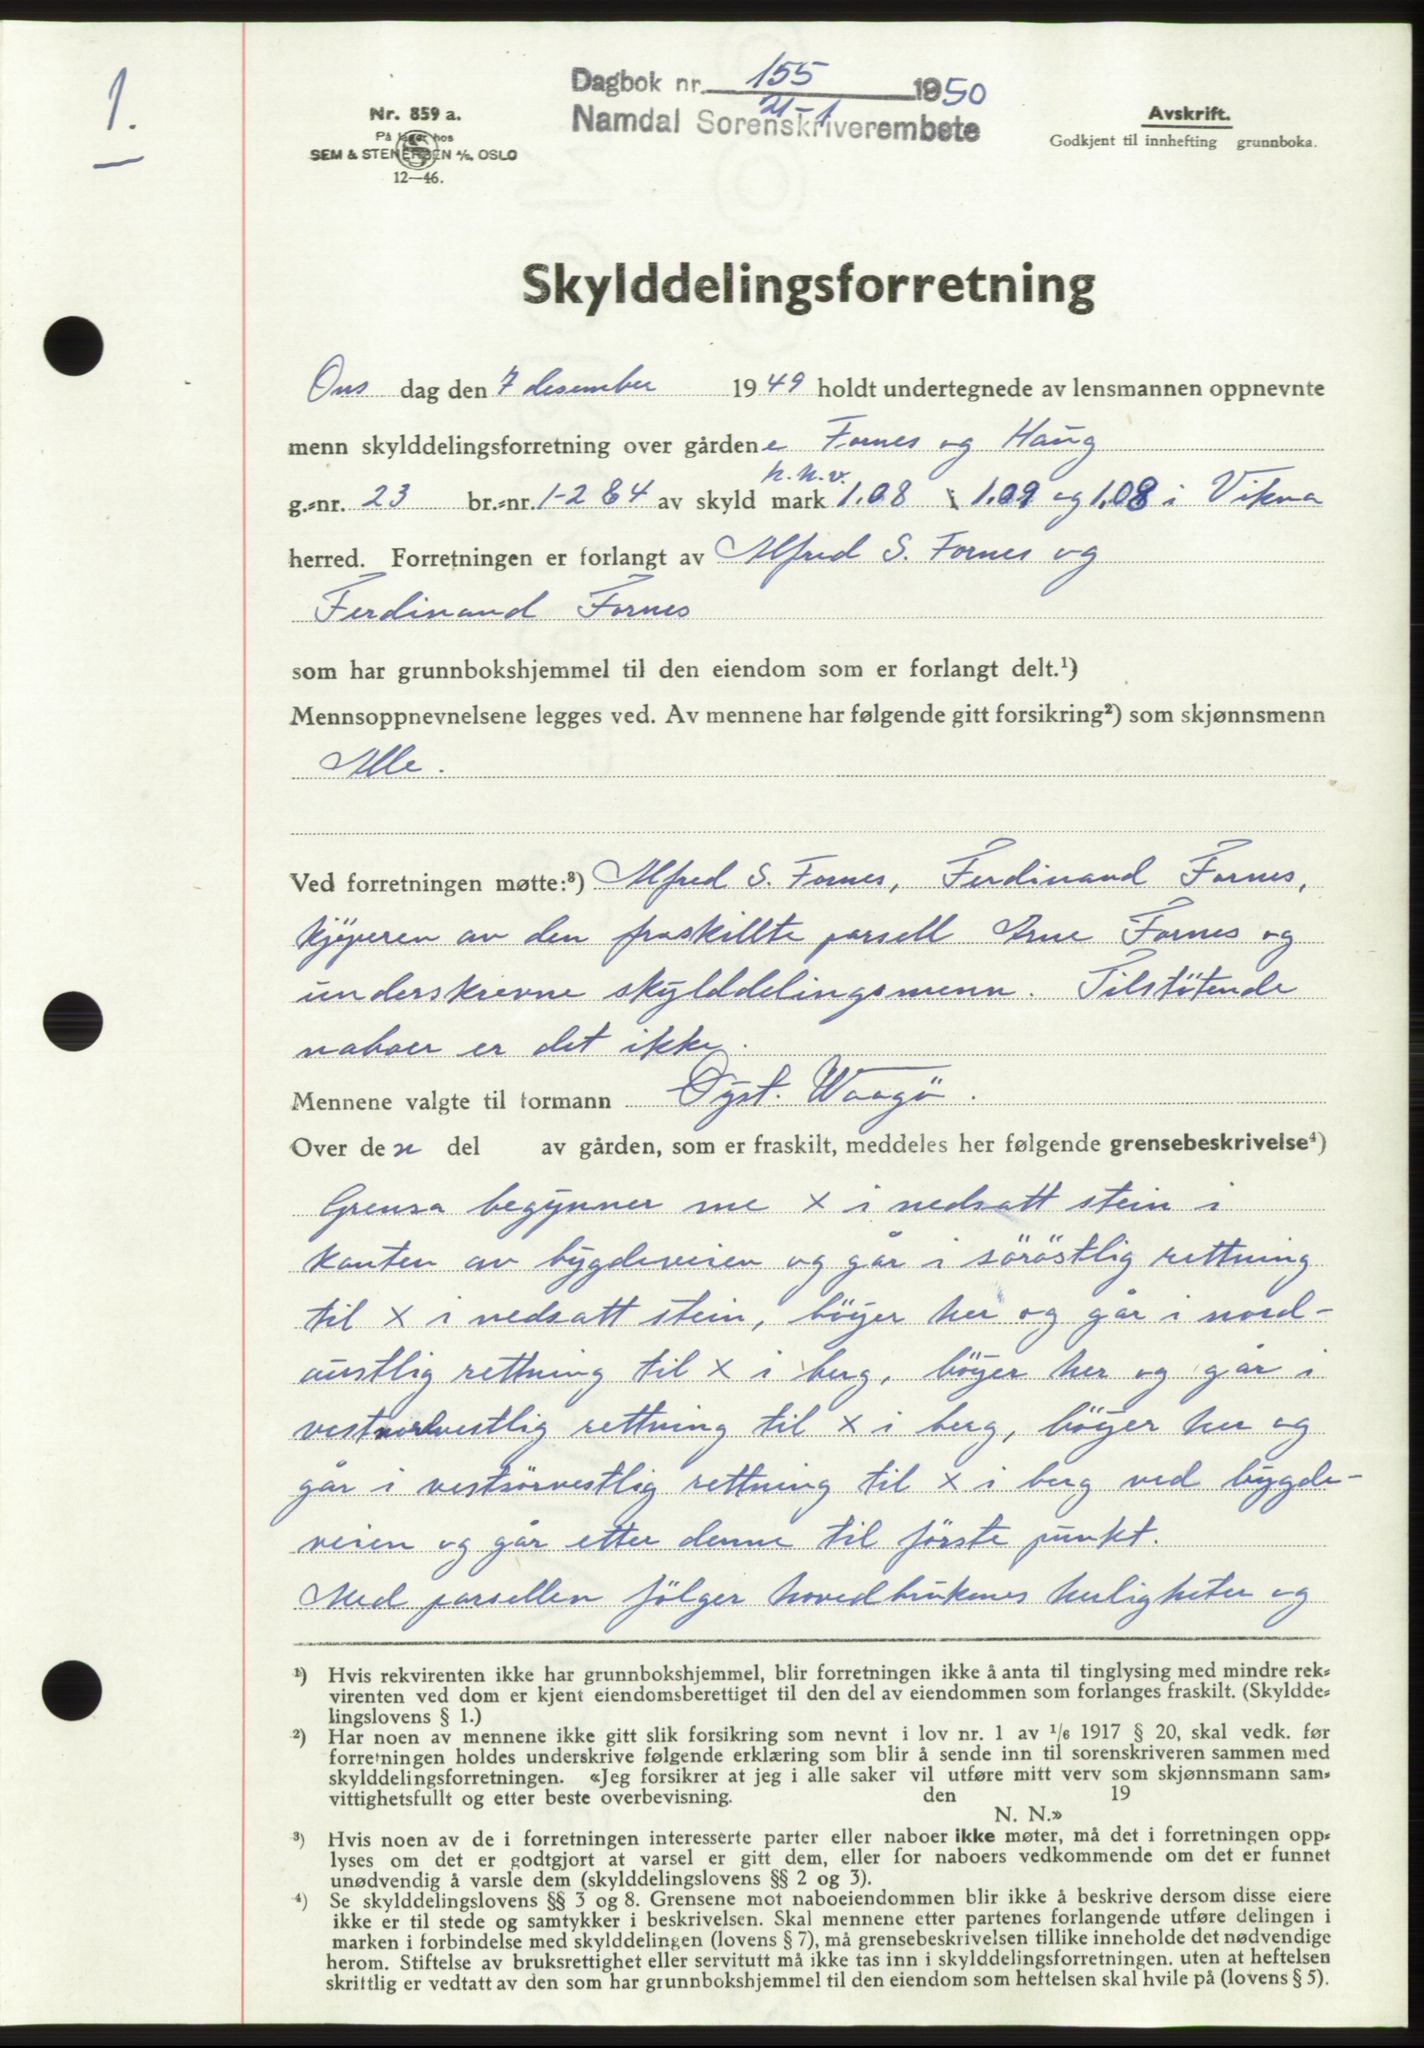 1.
Dagbok nr. 155 1950
21-1
Namdal Sorenskriverembete
Nr. 859 a.
På lager hos
SEM & STENERSEN A/S, OSLO
12—46.
Avskrift.
Godkjent til innhefting grunnboka.
Skylddelingsforretning
Ons dag den 7 desember 1949 holdt undertegnede av lensmannen oppnevnte
menn skylddelingsforretning over gårdene Fornes og Haug
h.h.v.
g.-nr. 23 br.-nr. 1-2 & 4 av skyld mark 1.08 1.09 og 1.08 i Vikna
herred. Forretningen er forlangt av Alfred S. Fornes og
Ferdinand Fornes
som har grunnbokshjemmel til den eiendom som er forlangt delt.¹)
Mennsoppnevnelsene legges ved. Av mennene har følgende gitt forsikring²) som skjønnsmenn
Alle.
Ved forretningen møtte:³) Alfred S. Fornes, Ferdinand Fornes,
kjøperen av den fraskillte parsell Arne Fornes og
underskrevne skylddelingsmenn. Tilstötende
naboer er det ikke.
Mennene valgte til formann Øyst. Waagö.
Over den del av gården, som er fraskilt, meddeles her følgende grensebeskrivelse⁴)
Grensa begynner me x i nedsatt stein i
kanten av bygdeveien og går i söröstlig rettning
til x i nedsatt stein, böyer her og går i nord-
austlig rettning til x i berg, böyer her og går i
vestnordvestlig rettning til x i berg, böyer her og
går i vestsörvestlig rettning til x i berg ved bygde-
veien og går etter denne til förste punkt.
Med parsellen fölger hovedbrukenes herligheter og
¹) Hvis rekvirenten ikke har grunnbokshjemmel, blir forretningen ikke å anta til tinglysing med mindre rek-
virenten ved dom er kjent eiendomsberettiget til den del av eiendommen som forlanges fraskilt. (Skyldde-
lingslovens § 1.)
²) Har noen av mennene ikke gitt slik forsikring som nevnt i lov nr. 1 av ¹/₆ 1917 § 20, skal vedk. før
forretningen holdes underskrive følgende erklæring som blir å sende inn til sorenskriveren sammen med
skylddelingsforretningen. «Jeg forsikrer at jeg i alle saker vil utføre mitt verv som skjønnsmann sam-
vittighetsfullt og etter beste overbevisning. den 19
N. N.»
³) Hvis noen av de i forretningen interesserte parter eller naboer ikke møter, må det i forretningen opp-
lyses om det er godtgjort at varsel er gitt dem, eller for naboers vedkommende om det er funnet
unødvendig å varsle dem (skylddelingslovens §§ 2 og 3).
⁴) Se skylddelingslovens §§ 3 og 8. Grensene mot naboeiendommen blir ikke å beskrive dersom disse eiere
ikke er til stede og samtykker i beskrivelsen. Skal mennene etter partenes forlangende utføre delingen i
marken i forbindelse med skylddelingen (lovens § 7), må grensebeskrivelsen tillike inneholde det nødvendige
herom. Stiftelse av bruksrettighet eller servitutt må ikke tas inn i skylddelingsforretningen. uten at heftelsen
skriftlig er vedtatt av den som har grunnbokshjemmel til den eiendom som heftelsen skal hvile på (lovens § 5).